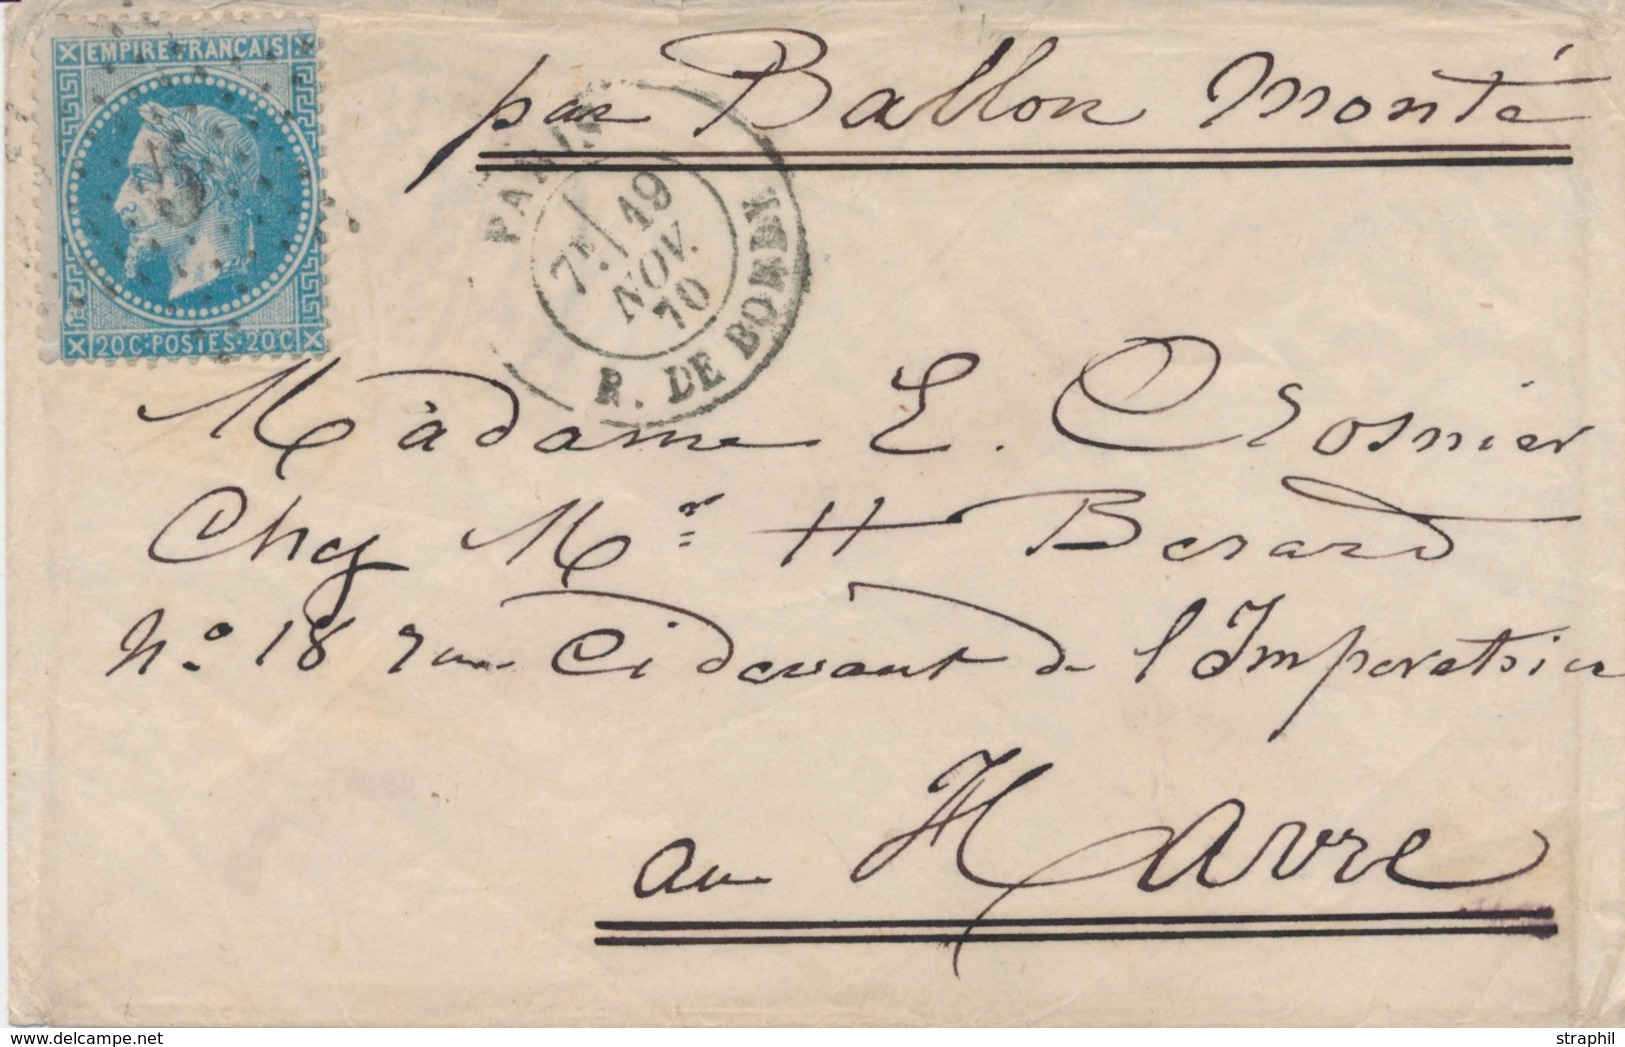 EMPIRE FRANCAIS
5
20C·POSTES·20C
PARIS
7E 19
NOV.
70
R. DE BONDY
par Ballon Monté
Madame E. Crosnier
Chez Mr H Berard
No 18 rue Ci devant de l'Imperatrice
au Havre
www.delcampe.net
straphil